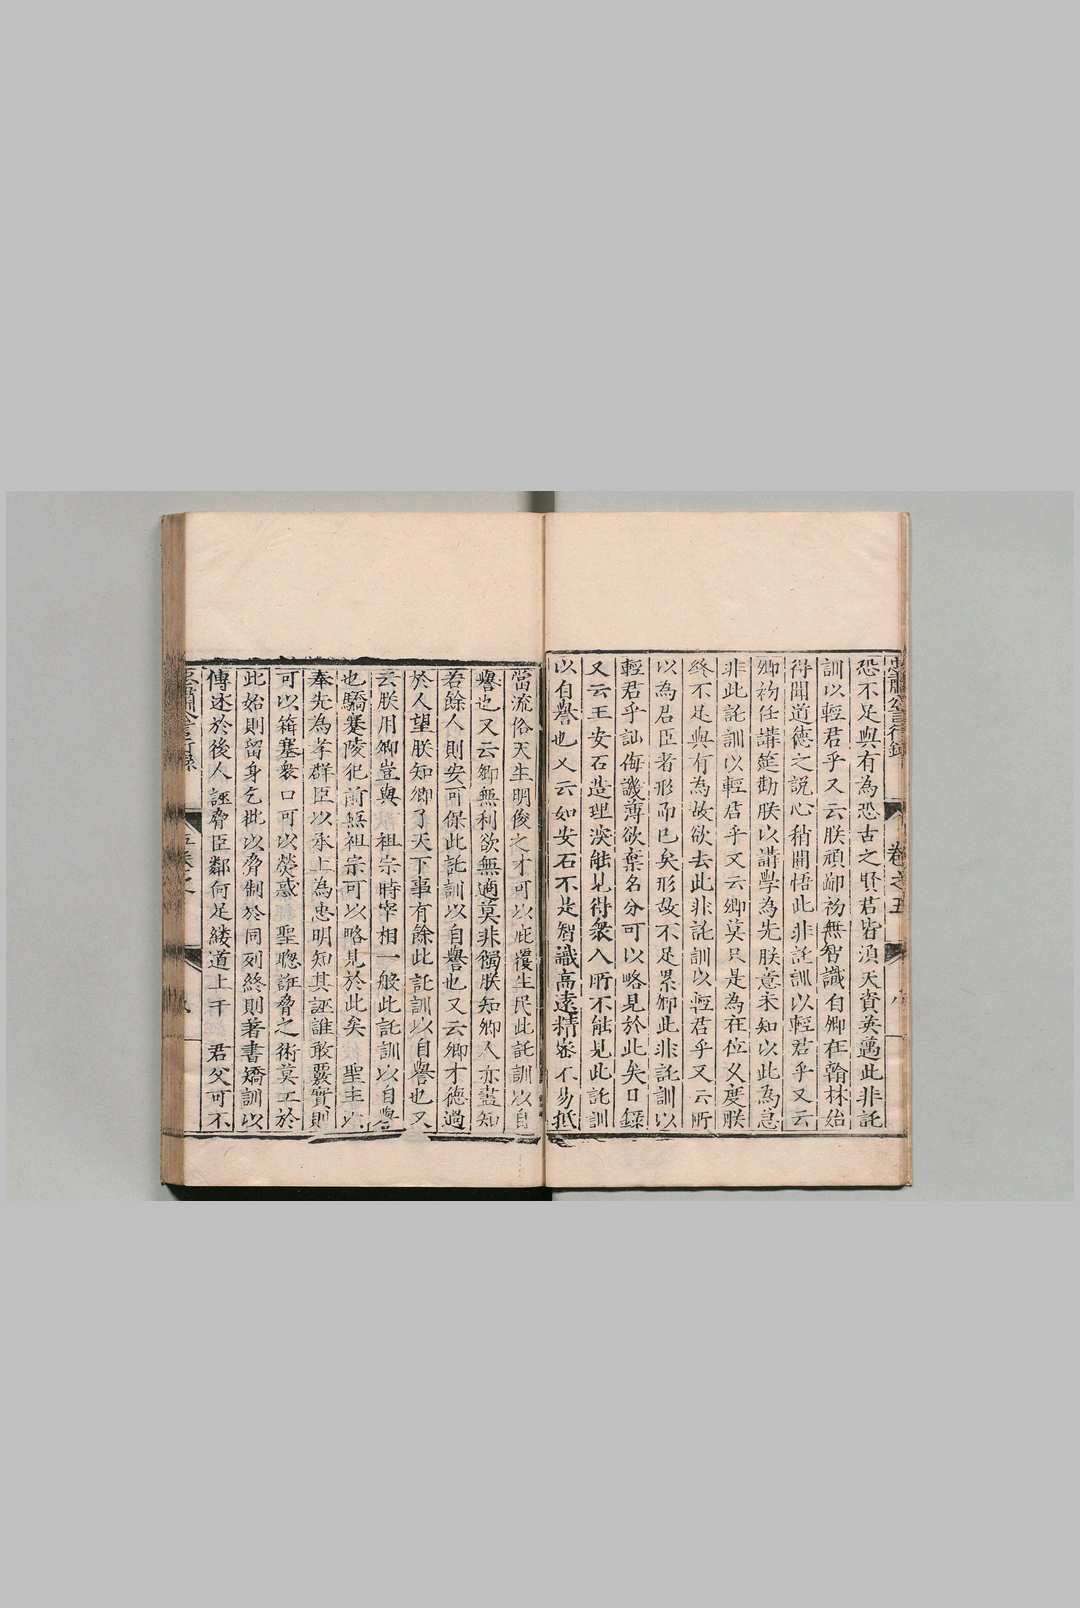 忠肅公言行錄
卷之五
八
恐不足與有為恐古之賢君皆湏天資英邁此非託
訓以輕君乎又云朕頑鄙初無智識自卿在翰林始
得聞道德之說心稍開悟此非託訓以輕君乎又云
卿初任講筵勸朕以講學為先朕意未知以此為急
非此託訓以輕君乎又云卿莫只是為在位久度朕
終不足與有為故欲去此非託訓以輕君乎又云所
以為君臣者形而已矣形故不足累卿此非託訓以
輕君乎訕侮譏薄欲棄名分可以略見於此矣日錄
又云王安石造理深能見得衆人所不能見此託訓
以自譽也又云如安石不是智識高遠精密不易抵
當流俗天生明俊之才可以庇覆生民此託訓以自
譽也又云卿無利欲無適莫非獨朕知卿人亦盡知
若餘人則安可保此託訓以自譽也又云卿才德過
於人望朕知卿了天下事有餘此託訓以自譽也又
云朕用卿豈與 祖宗時宰相一般此託訓以自譽
也驕蹇陵犯前無祖宗可以略見於此矣 聖主以
奉先為孝群臣以承上為忠明知其誣誰敢覈實則
可以箝塞衆口可以熒惑 聖聰誑脅之術莫工於
此始則留身乞批以脅制於同列終則著書矯訓以
傳述於後人誣脅臣鄰何足縷道上干 君父可不